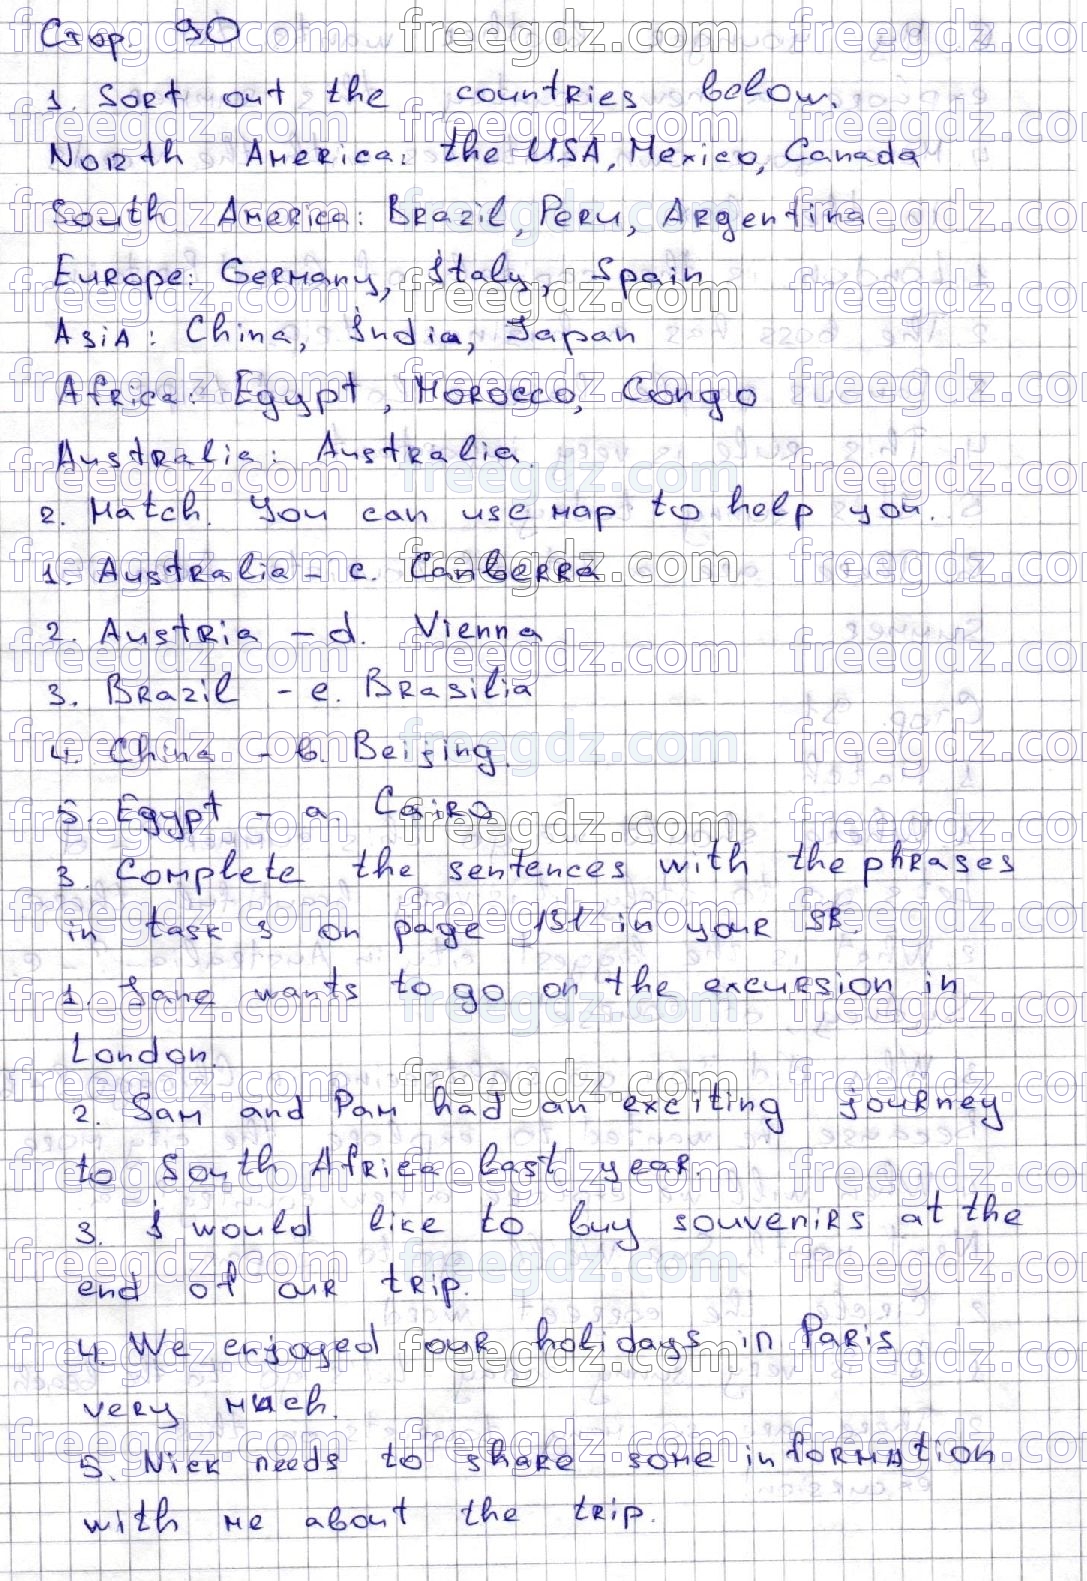 Стор. 90
1. Sort out the countries below.
North America: the USA, Mexico, Canada
South America: Brazil, Peru, Argentina
Europe: Germany, Italy, Spain
Asia: China, India, Japan
Africa: Egypt, Morocco, Congo
Australia: Australia.
2. Match. You can use map to help you.
1. Australia - c. Canberra
2. Austria - d. Vienna
3. Brazil - e. Brasilia
4. China - b. Beijing.
5. Egypt - a. Cairo
3. Complete the sentences with the phrases
in task 3 on page 131 in your SB.
1. Jane wants to go on the excursion in
London.
2. Sam and Pam had an exciting journey
to South Africa last year.
3. I would like to buy souvenirs at the
end of our trip.
4. We enjoyed our holidays in Paris
very much.
5. Nick needs to share some information
with me about the trip.
freegdz.com